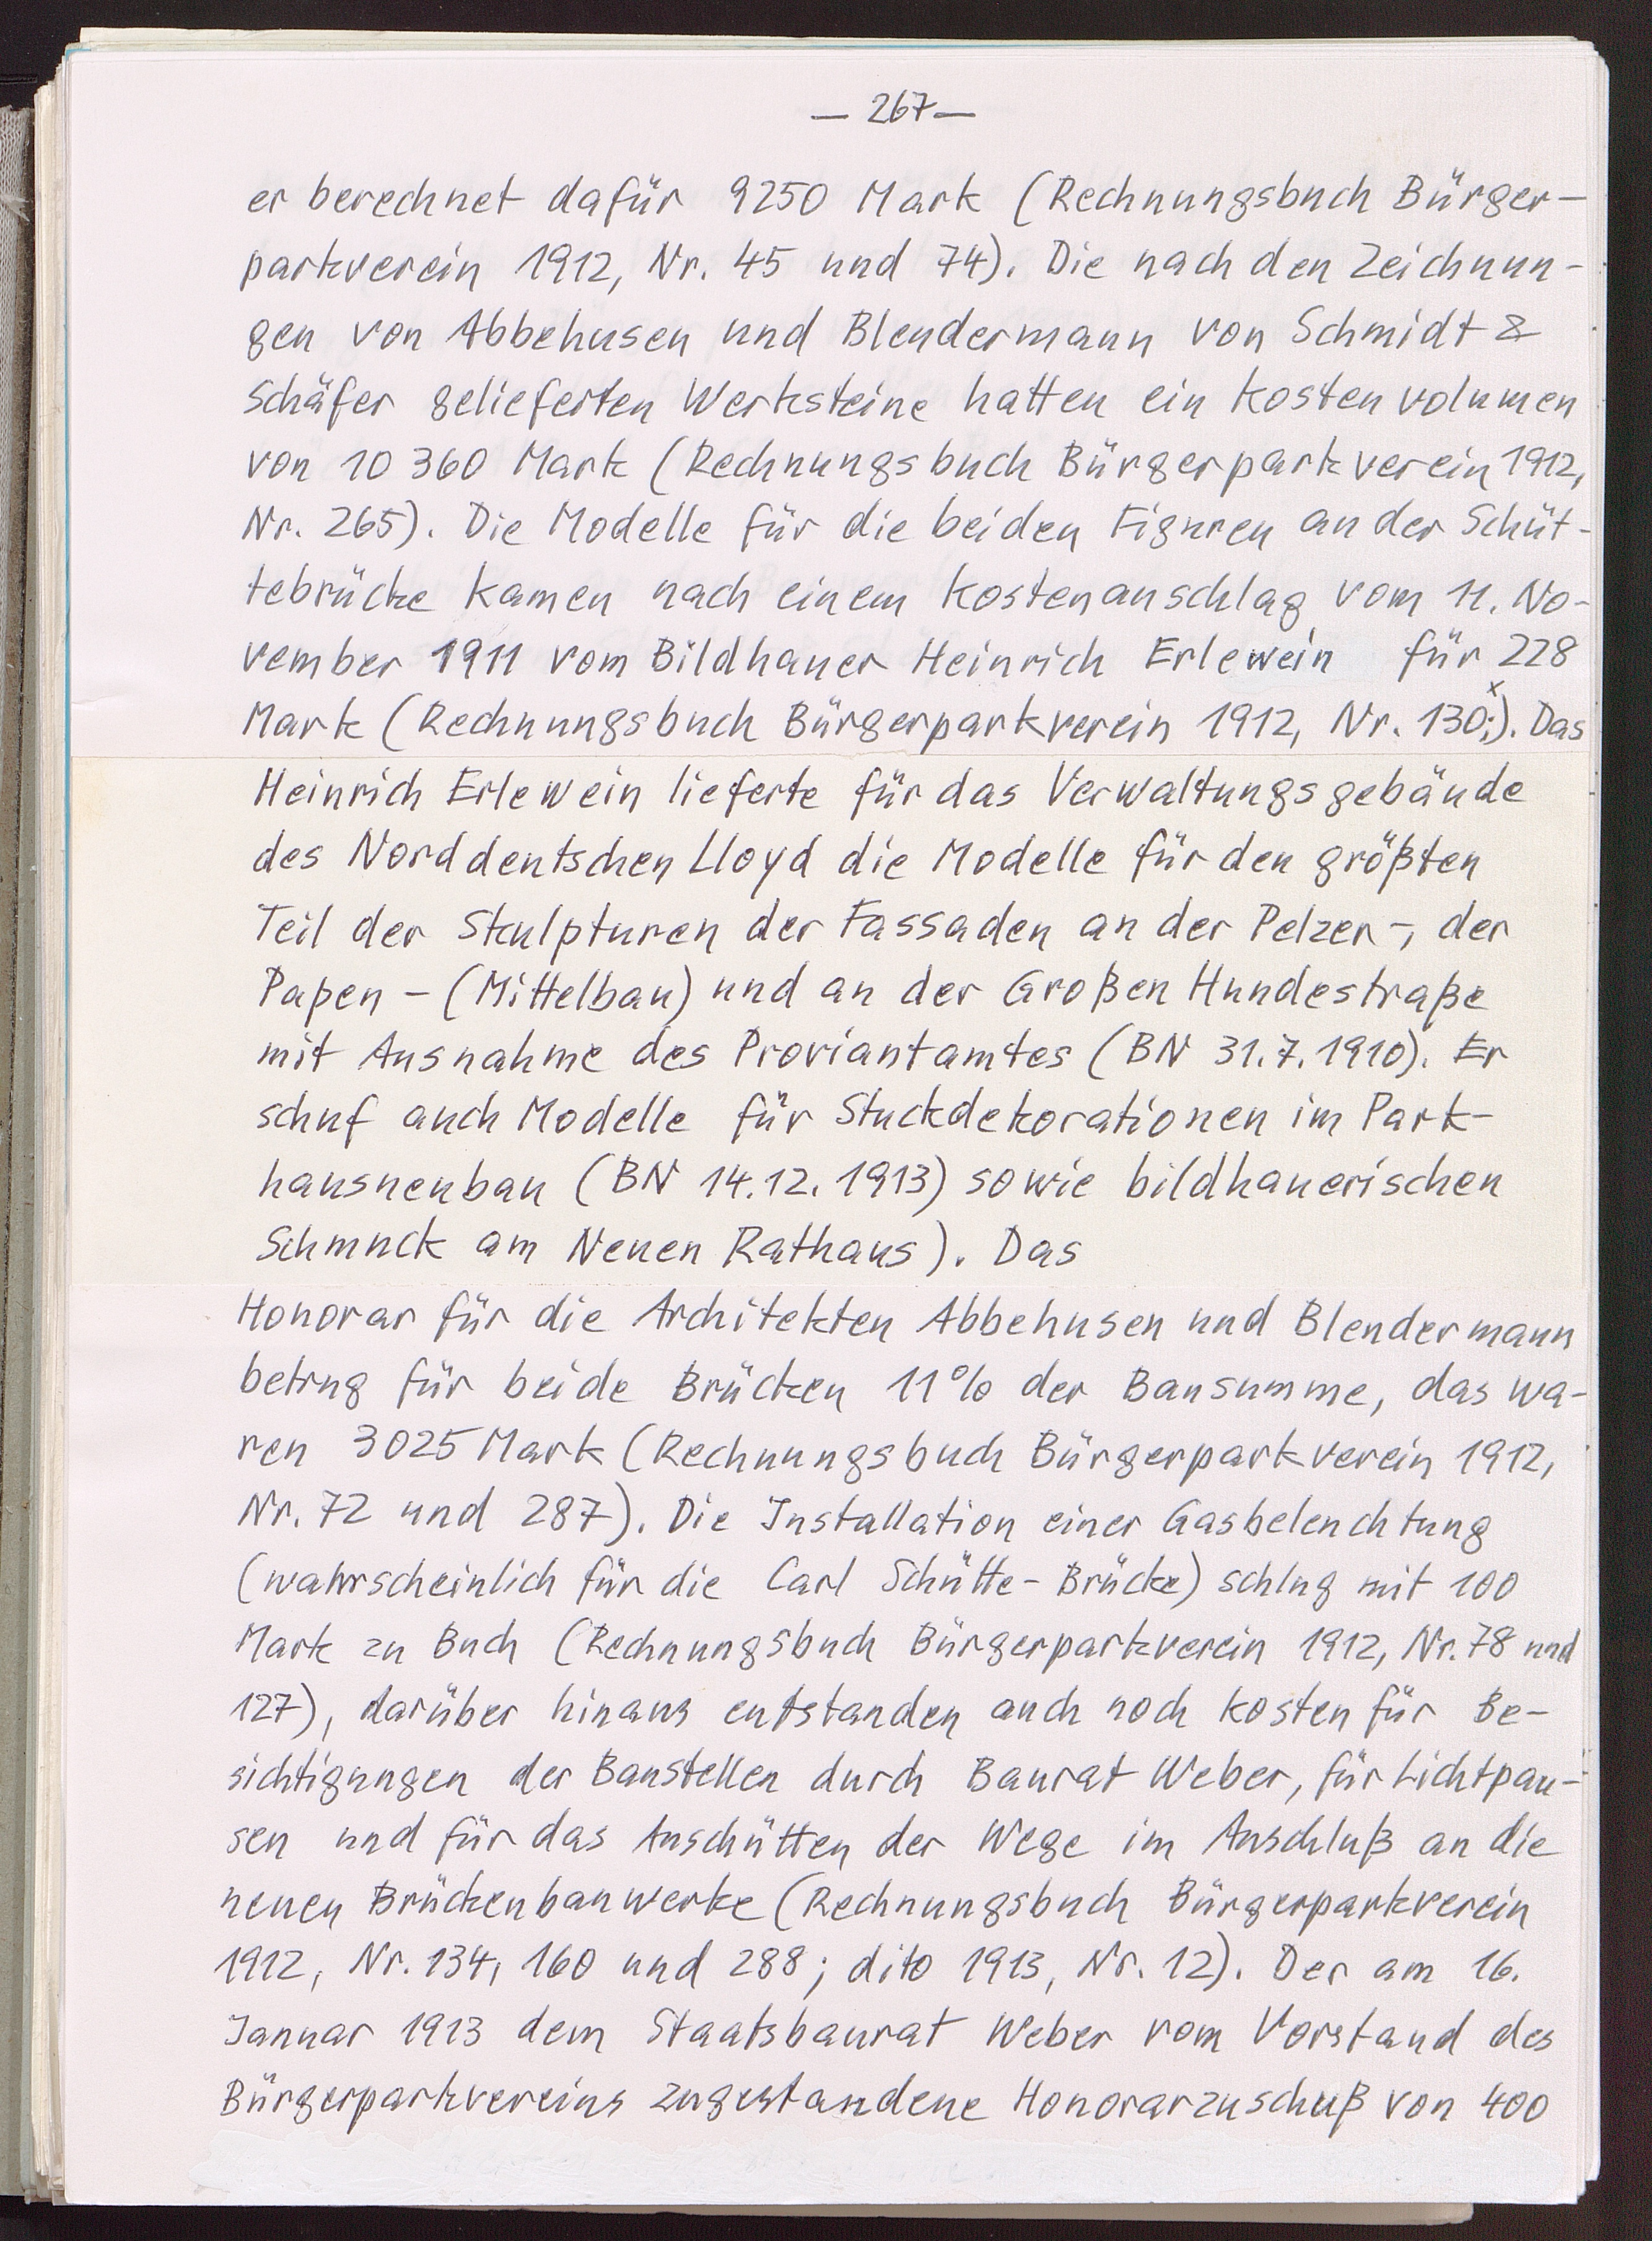 — 267 —
er berechnet dafür 9250 Mark (Rechnungsbuch Bürger-
parkverein 1912, Nr. 45 und 74). Die nach den Zeichnun-
gen von Abbehusen und Blendermann von Schmidt &
Schäfer gelieferten Werksteine hatten ein Kostenvolumen
von 10 360 Mark (Rechnungsbuch Bürgerparkverein 1912,
Nr. 265). Die Modelle für die beiden Figuren an der Schüt-
tebrücke kamen nach einem Kostenanschlag vom 11. No-
vember 1911 vom Bildhauer Heinrich Erlewein für 228
Mark (Rechnungsbuch Bürgerparkverein 1912, Nr. 130;x). Das
Heinrich Erlewein lieferte für das Verwaltungsgebäude
des Norddeutschen Lloyd die Modelle für den größten
Teil der Skulpturen der Fassaden an der Pelzer-, der
Papen- (Mittelbau) und an der Großen Hundestraße
mit Ausnahme des Proviantamtes (BN 31.7.1910). Er
schuf auch Modelle für Stuckdekorationen im Park-
hausneubau (BN 14.12.1913) sowie bildhauerischen
Schmuck am Neuen Rathaus). Das
Honorar für die Architekten Abbehusen und Blendermann
betrug für beide Brücken 11% der Bausumme, das wa-
ren 3025 Mark (Rechnungsbuch Bürgerparkverein 1912,
Nr. 72 und 287). Die Installation einer Gasbeleuchtung
(wahrscheinlich für die Carl Schütte-Brücke) schlug mit 100
Mark zu Buch (Rechnungsbuch Bürgerparkverein 1912, Nr. 78 und
127), darüber hinaus entstanden auch noch Kosten für Be-
sichtigungen der Baustellen durch Baurat Weber, für Lichtpau-
sen und für das Anschütten der Wege im Anschluß an die
neuen Brückenbauwerke (Rechnungsbuch Bürgerparkverein
1912, Nr. 134, 160 und 288; dito 1913, Nr. 12). Der am 16.
Januar 1913 dem Staatsbaurat Weber vom Vorstand des
Bürgerparkvereins zugestandene Honorarzuschuß von 400